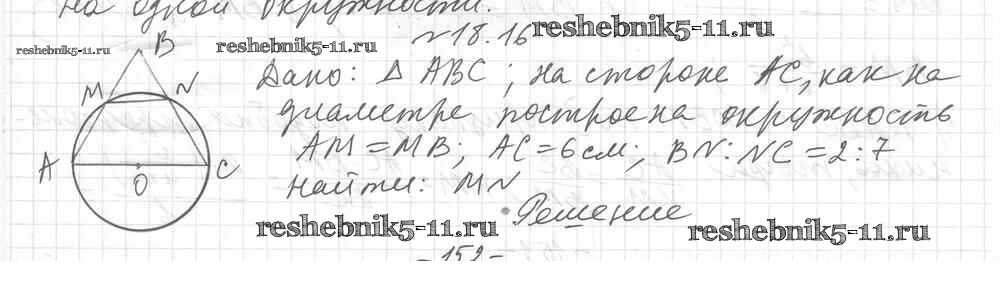 на одной окружности.
reshebnik5-11.ru reshebnik5-11.ru №18.16 reshebnik5-11.ru
B
M N
A C
O
Дано: Δ ABC; на стороне AC, как на
диаметре построена окружность
AM = MB; AC = 6 см; BN : NC = 2 : 7
Найти: MN
Решение
reshebnik5-11.ru reshebnik5-11.ru
- 152 -